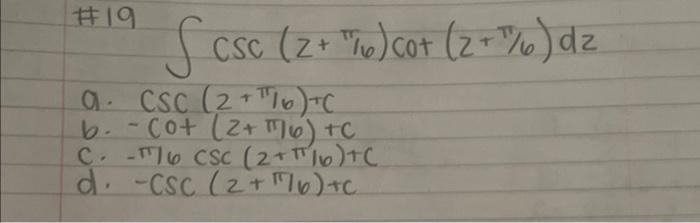 #19
∫ csc (z + π/6) cot (z + π/6) dz
a. csc (z + π/6) + C
b. -cot (z + π/6) + C
c. -π/6 csc (z + π/6) + C
d. -csc (z + π/6) + C